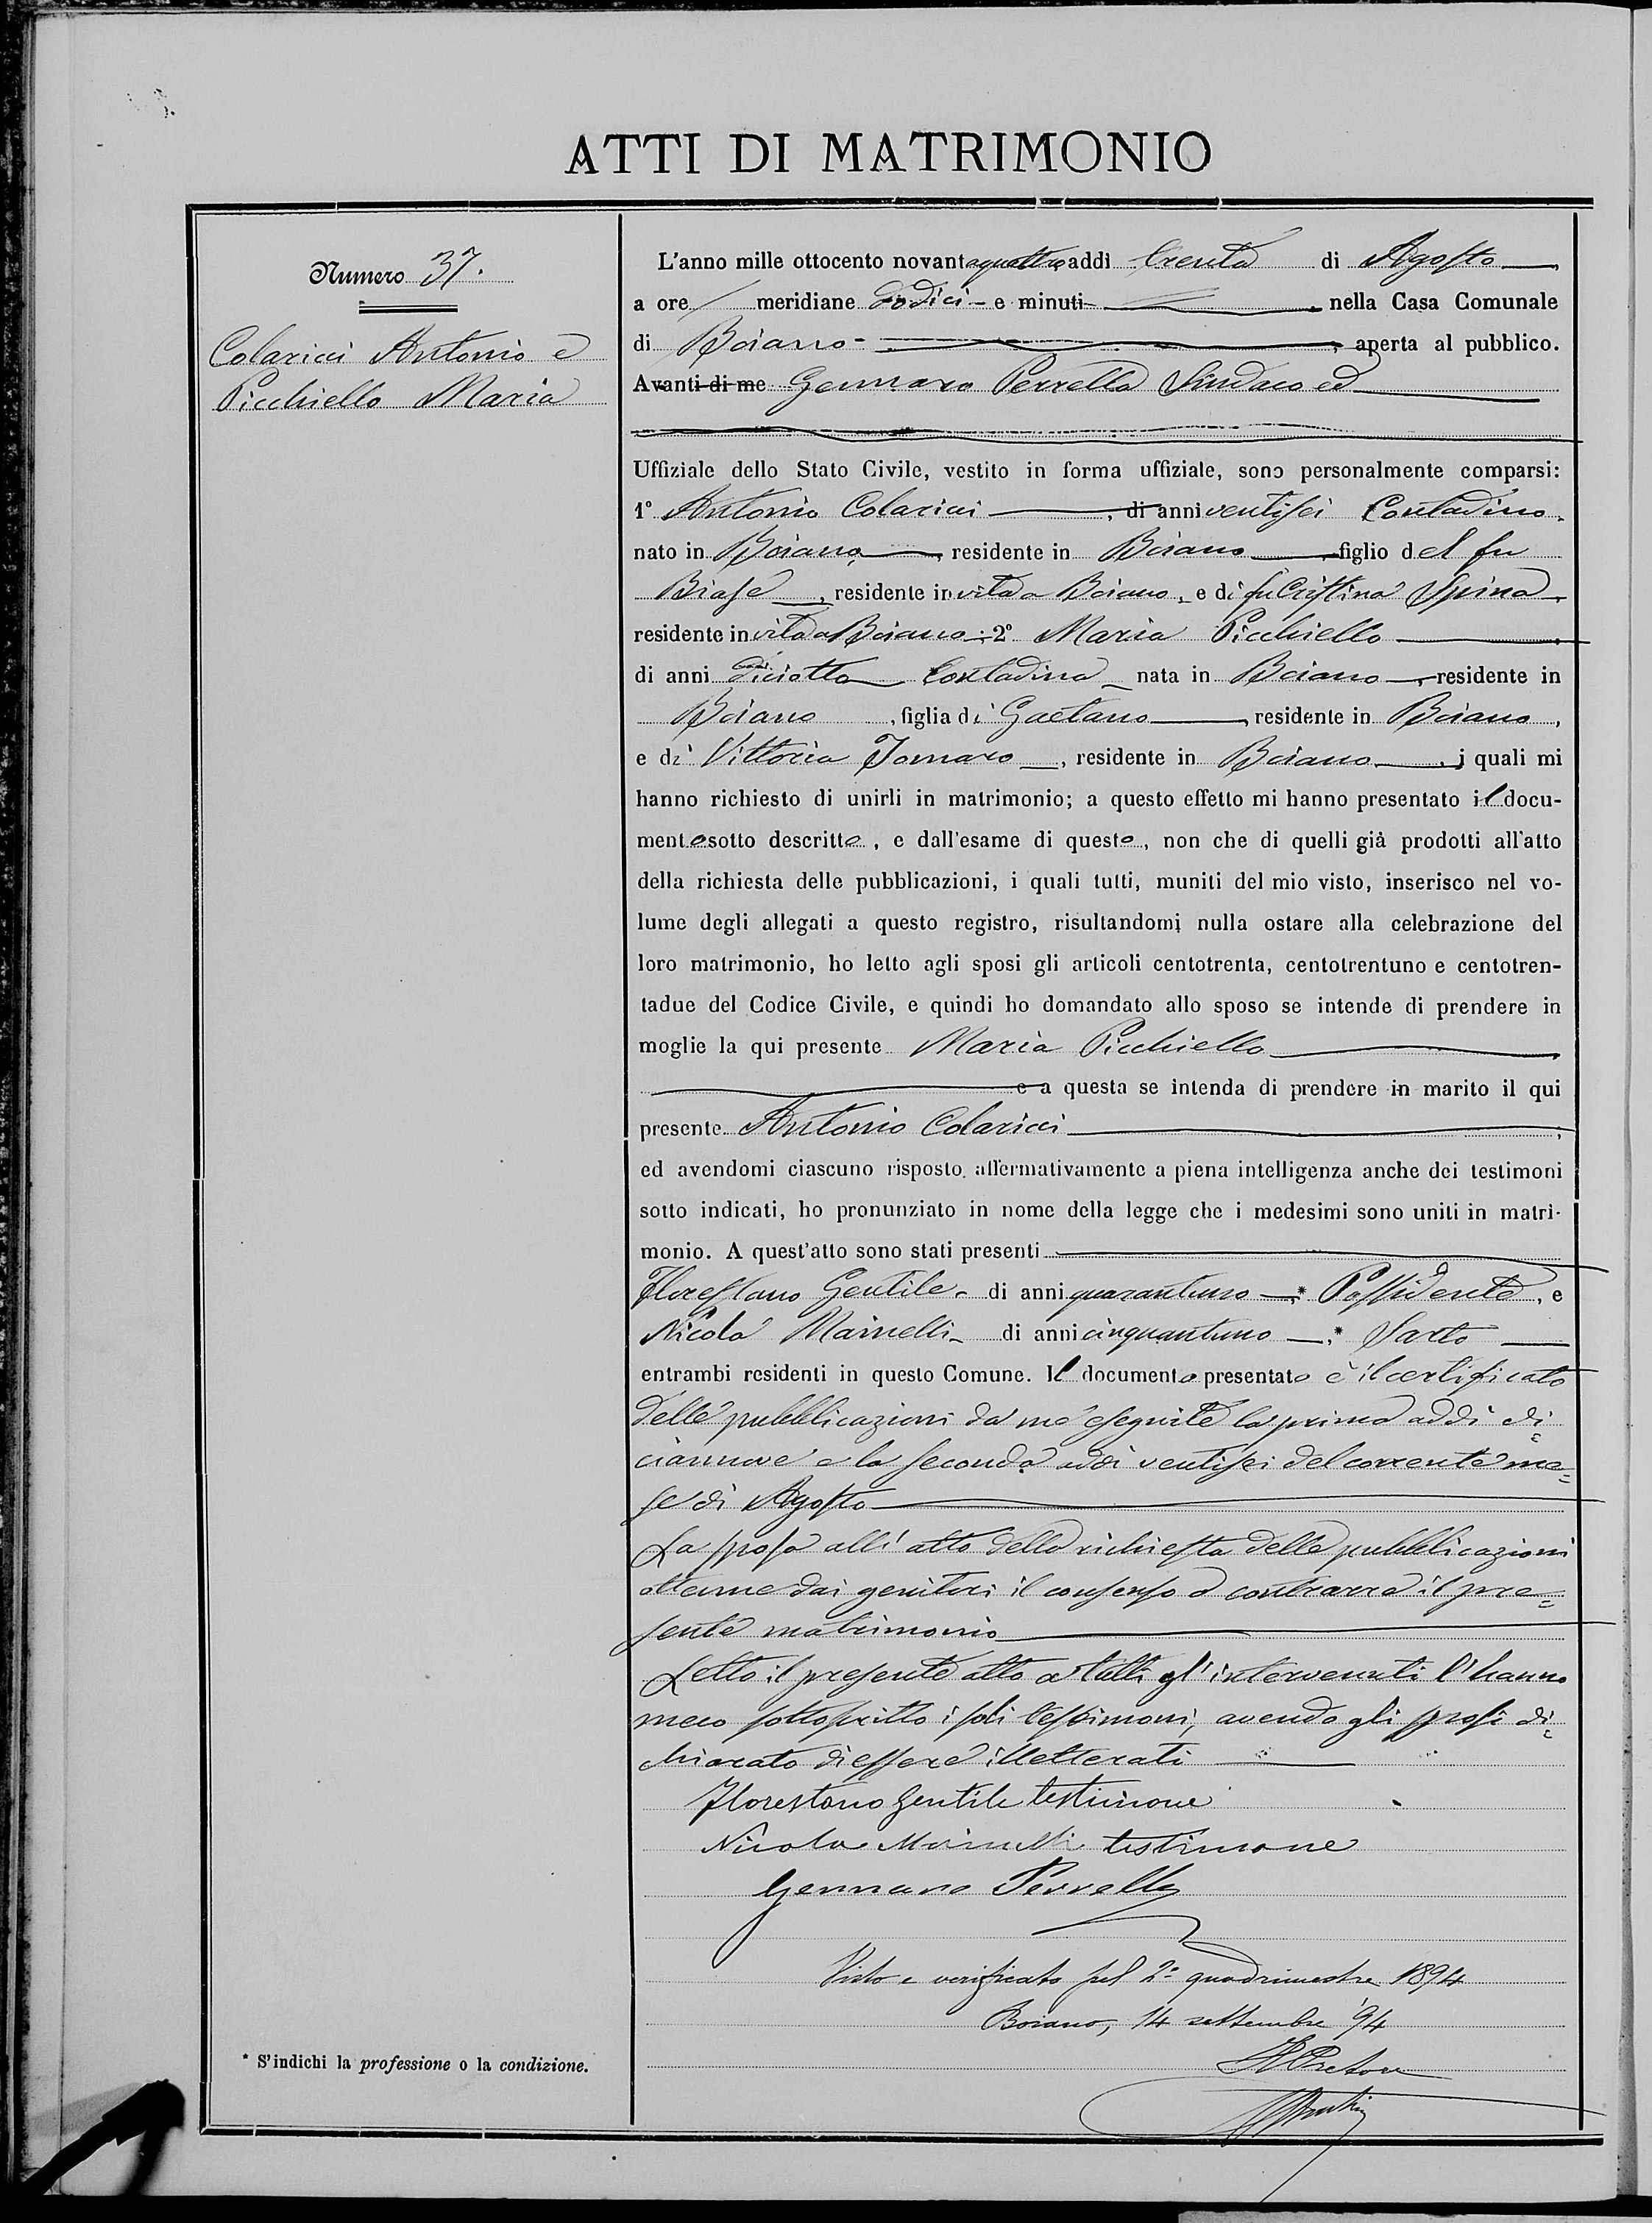 ATTI DI MATRIMONIO
Numero 37.
Colarici Antonio e
Picchiello Maria
L'anno mille ottocento novantaquattro addì trenta di Agosto
a ore meridiane dodici e minuti , nella Casa Comunale
di Boiano , aperta al pubblico.
Avanti di me Gennaro Perrella Sindaco ed
Uffiziale dello Stato Civile, vestito in forma uffiziale, sono personalmente comparsi:
1° Antonio Colarici , di anni ventisei Contadino,
nato in Boiano, residente in Boiano, figlio del fu
Biase, residente in vita a Boiano, e di fu Cristina Spina
residente in vita a Boiano; 2° Maria Picchiello
di anni diciotto Contadina nata in Boiano, residente in
Boiano, figlia di Gaetano, residente in Boiano,
e di Vittoria residente in Boiano, i quali mi
hanno richiesto di unirli in matrimonio; a questo effetto mi hanno presentato il docu-
mento sotto descritto, e dall'esame di questo, non che di quelli già prodotti all'atto
della richiesta delle pubblicazioni, i quali tutti, muniti del mio visto, inserisco nel vo-
lume degli allegati a questo registro, risultandomi nulla ostare alla celebrazione del
loro matrimonio, ho letto agli sposi gli articoli centotrenta, centotrentuno e centotren-
tadue del Codice Civile, e quindi ho domandato allo sposo se intende di prendere in
moglie la qui presente Maria Picchiello
e a questa se intenda di prendere in marito il qui
presente Antonio Colarici
ed avendomi ciascuno risposto affermativamente a piena intelligenza anche dei testimoni
sotto indicati, ho pronunziato in nome della legge che i medesimi sono uniti in matri-
monio. A quest'atto sono stati presenti
Florestano Gentile, di anni quarantuno, * Possidente, e
Nicola Mainelli, di anni cinquantuno, * Sarto
entrambi residenti in questo Comune. Il documento presentato è il certificato
delle pubblicazioni da me eseguite la prima addì di=
ciannove e la seconda addì ventisei del corrente me=
se di Agosto
La sposa all'atto della richiesta delle pubblicazioni
ottenne dai genitori il consenso a contrarre il pre=
sente matrimonio
Letto il presente atto a tutti gl'intervenuti l'hanno
meco sottoscritto i soli testimoni, avendo gli sposi di=
chiarato di essere illetterati
Florestano Gentile testimone
Nicola Mainelli testimone
Gennaro Perrella
Visto e verificato pel 2° quadrimestre 1894
Boiano, 14 settembre '94
Il Pretore
* S'indichi la professione o la condizione.